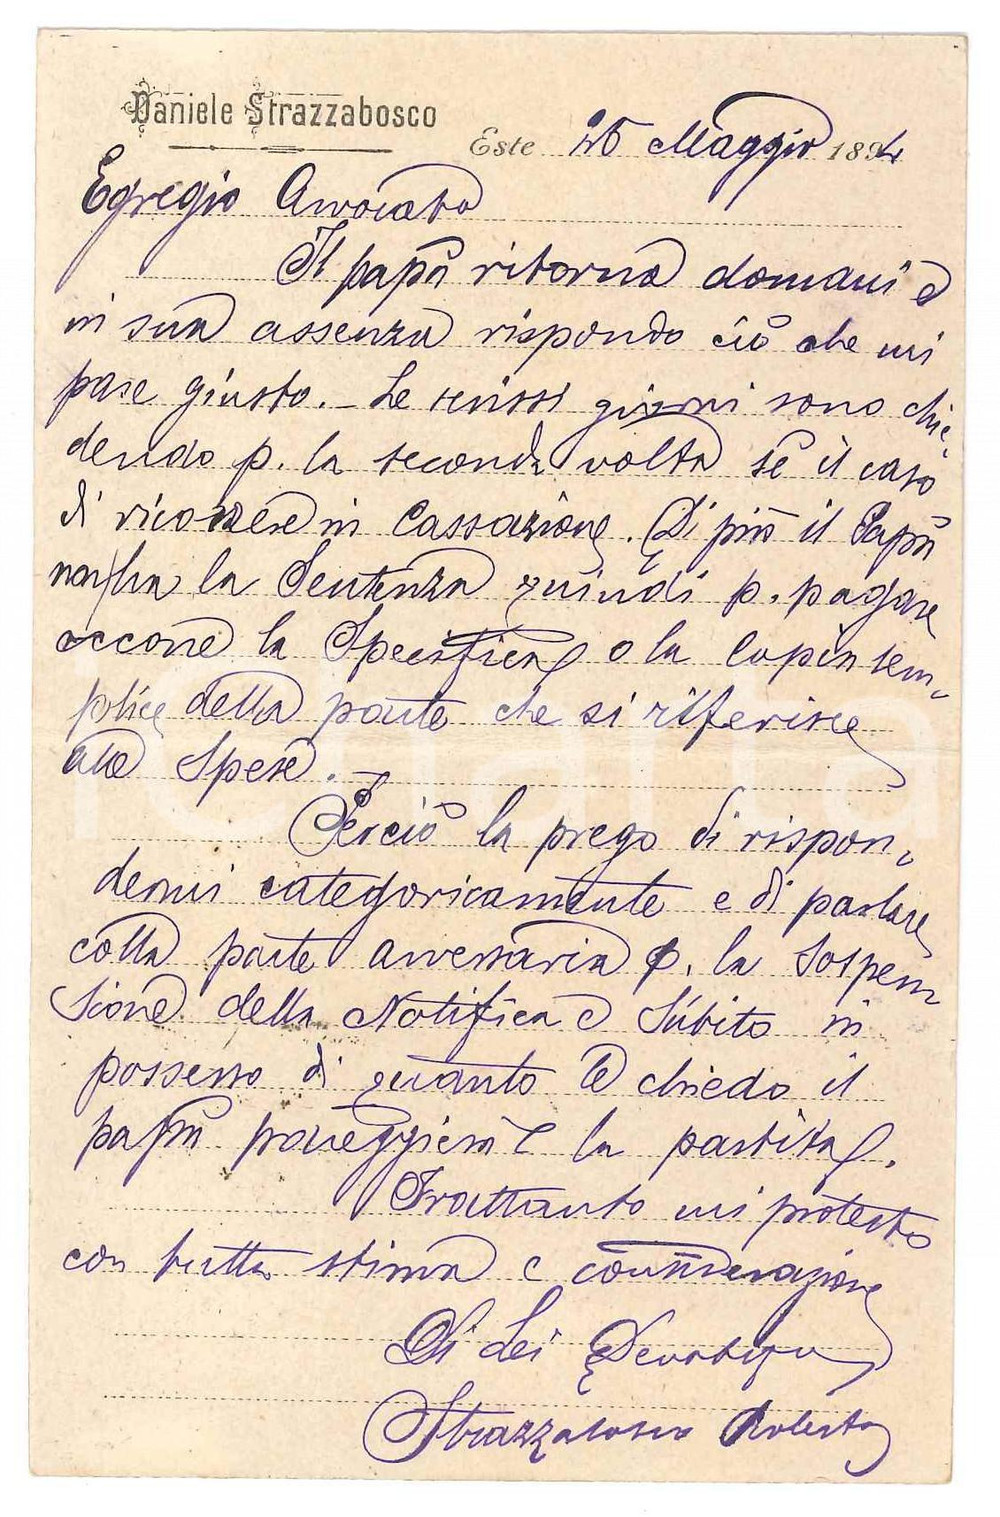 Daniele Strazzabosco
Este 26 Maggio 1894
Egregio Avvocato
Il papà ritorna domani e
in sua assenza rispondo ciò che mi
pare giusto. - Le scrissi giorni sono chie-
dendo p. la seconda volta se è il caso
di ricorrere in Cassazione. Di più il Papà
non ha la Sentenza quindi p. pagare
occorre la Specifica o la copia sem-
plice della parte che si riferisce
alle Spese. -
Perciò la prego di rispon-
dermi categoricamente e di parlare
colla parte avversaria p. la Sospen
sione della Notifica e Súbito in
possesso di quanto Le chiedo il
papà proveggierà la partita.
Frattanto mi protesto
con tutta stima e considerazione
Di Lei
Strazzabosco Roberto